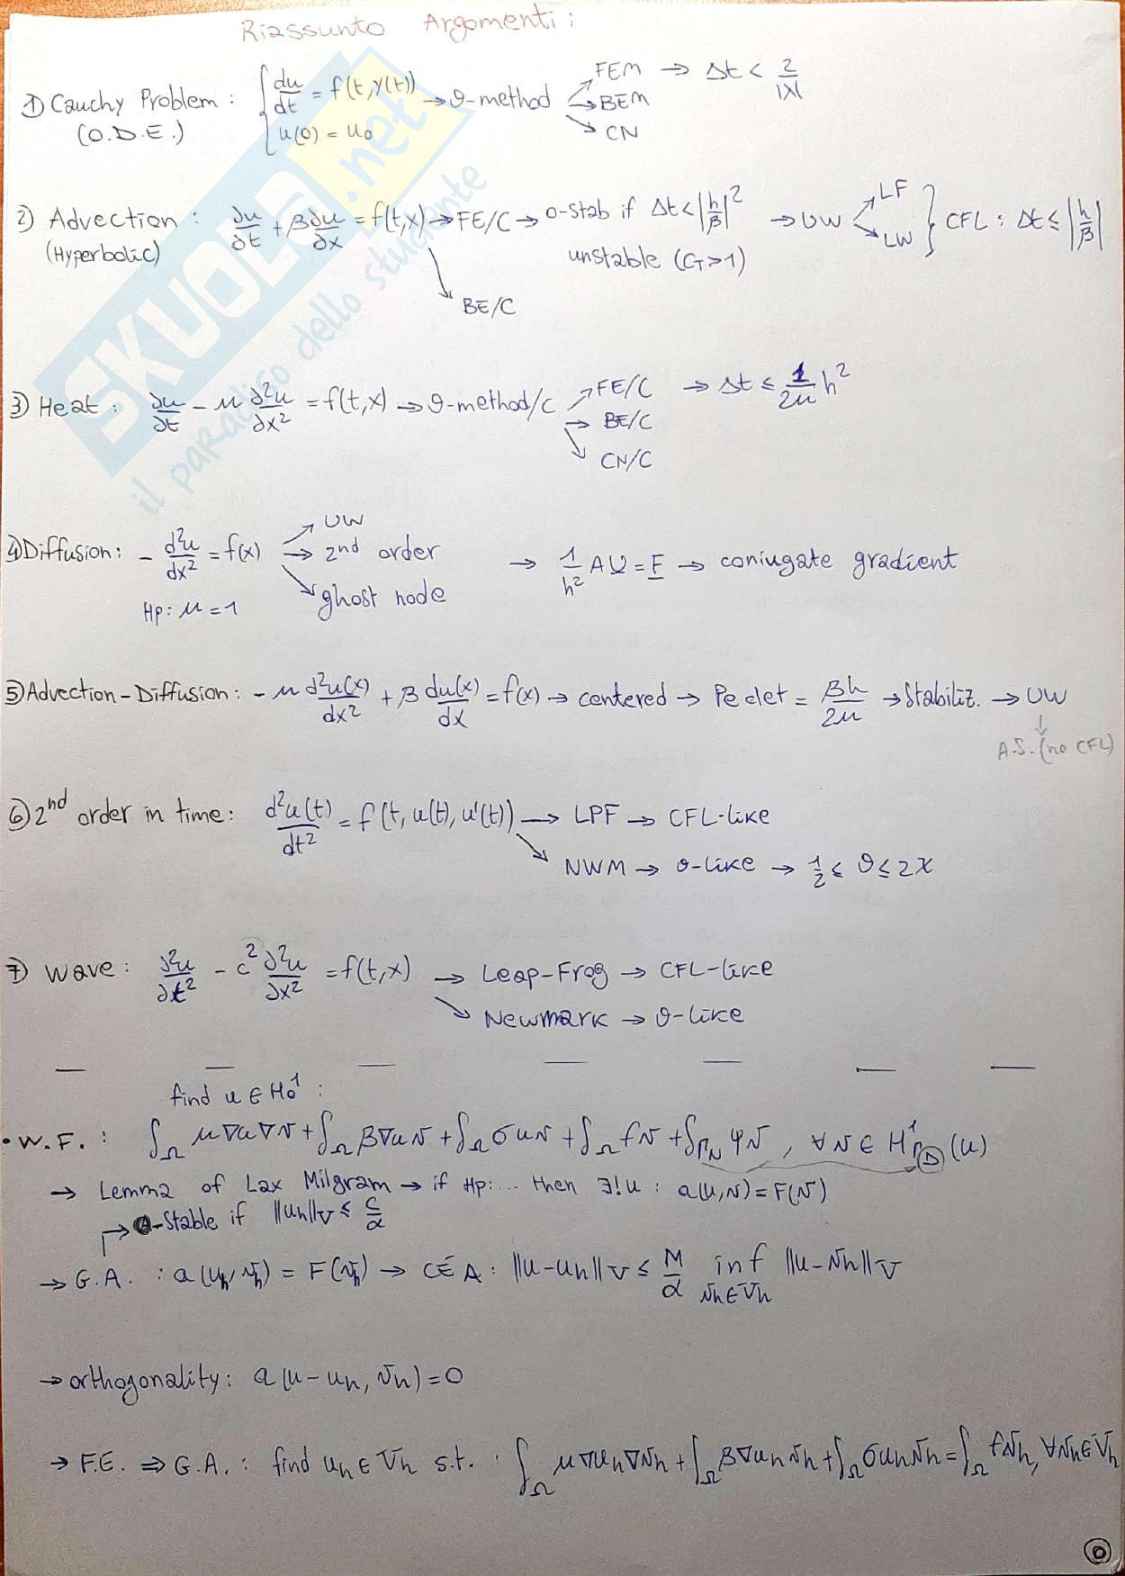 Riassunto Argomenti:
1) Cauchy Problem: { du/dt = f(t, y(t)) → θ-method → FEM → Δt < 2/|λ|
(O.D.E.) u(0) = u₀ → BEM
→ CN
2) Advection: ∂u/∂t + β ∂u/∂x = f(t,x) → FE/C → 0-stab if Δt < |h/β|² → UW → LF } CFL: Δt ≤ |h/β|
(Hyperbolic) unstable (CT>1) → LW
→ BE/C
3) Heat: ∂u/∂t - μ ∂²u/∂x² = f(t,x) → θ-method/C → FE/C → Δt ≤ 1/2μ h²
→ BE/C
→ CN/C
4) Diffusion: - d²u/dx² = f(x) → UW
→ 2nd order → 1/h² AU = F → coniugate gradient
Hp: μ = 1 → ghost node
5) Advection-Diffusion: - μ d²u(x)/dx² + β du(x)/dx = f(x) → centered → Peclet = βh/2μ → Stabiliz. → UW
↓
A.S. (no CFL)
6) 2nd order in time: d²u(t)/dt² = f(t, u(t), u'(t)) → LPF → CFL-like
→ NWM → θ-like → 1/2 ≤ θ ≤ 2χ
7) Wave: ∂²u/∂t² - c² ∂²u/∂x² = f(t,x) → Leap-Frog → CFL-like
→ Newmark → θ-like
find u ∈ H₀¹ :
• W.F. : ∫Ω μ∇u∇v + ∫Ω β∇u v + ∫Ω σuv + ∫Ω fv + ∫ΓN φv , ∀v ∈ H¹ΓD (u)
→ Lemma of Lax Milgram → if Hp:... then ∃!u : a(u,v) = F(v)
→ A-Stable if ||uh||V ≤ C/α
→ G.A. : a(uh, vh) = F(vh) → CÉA: ||u-uh||V ≤ M/α inf vh∈Vh ||u-vh||V
→ orthogonality: a(u-uh, vh) = 0
→ F.E. ⇒ G.A. : find uh ∈ Vh s.t. : ∫Ω μ∇uh∇vh + ∫Ω β∇uh vh + ∫Ω σuhvh = ∫Ω fvh, ∀vh∈Vh
0
SKUOLA.net
il paradiso dello studente